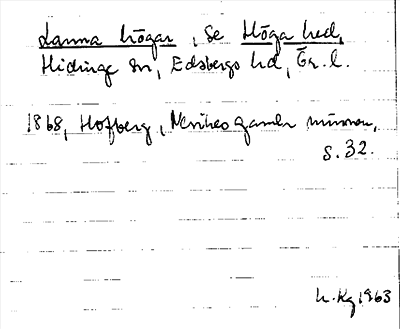 Lanna högar, se Höga hed,
Hidinge sn, Edsbergs hd, Ör. l.
1868, Hofberg, Nerikes gamla minnen,
s. 32.
h. Kg 1963